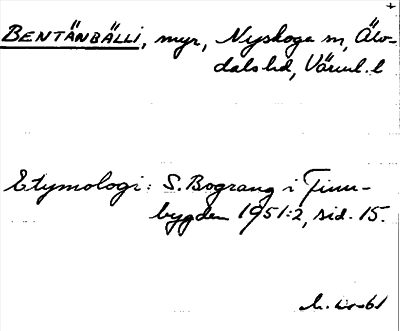 BENTÄNBÄLLI, myr, Nyskoga sn, Älv-
dals hd, Värml. l
Etymologi: S. Bograng i Finn-
bygden 1951:2, sid. 15.